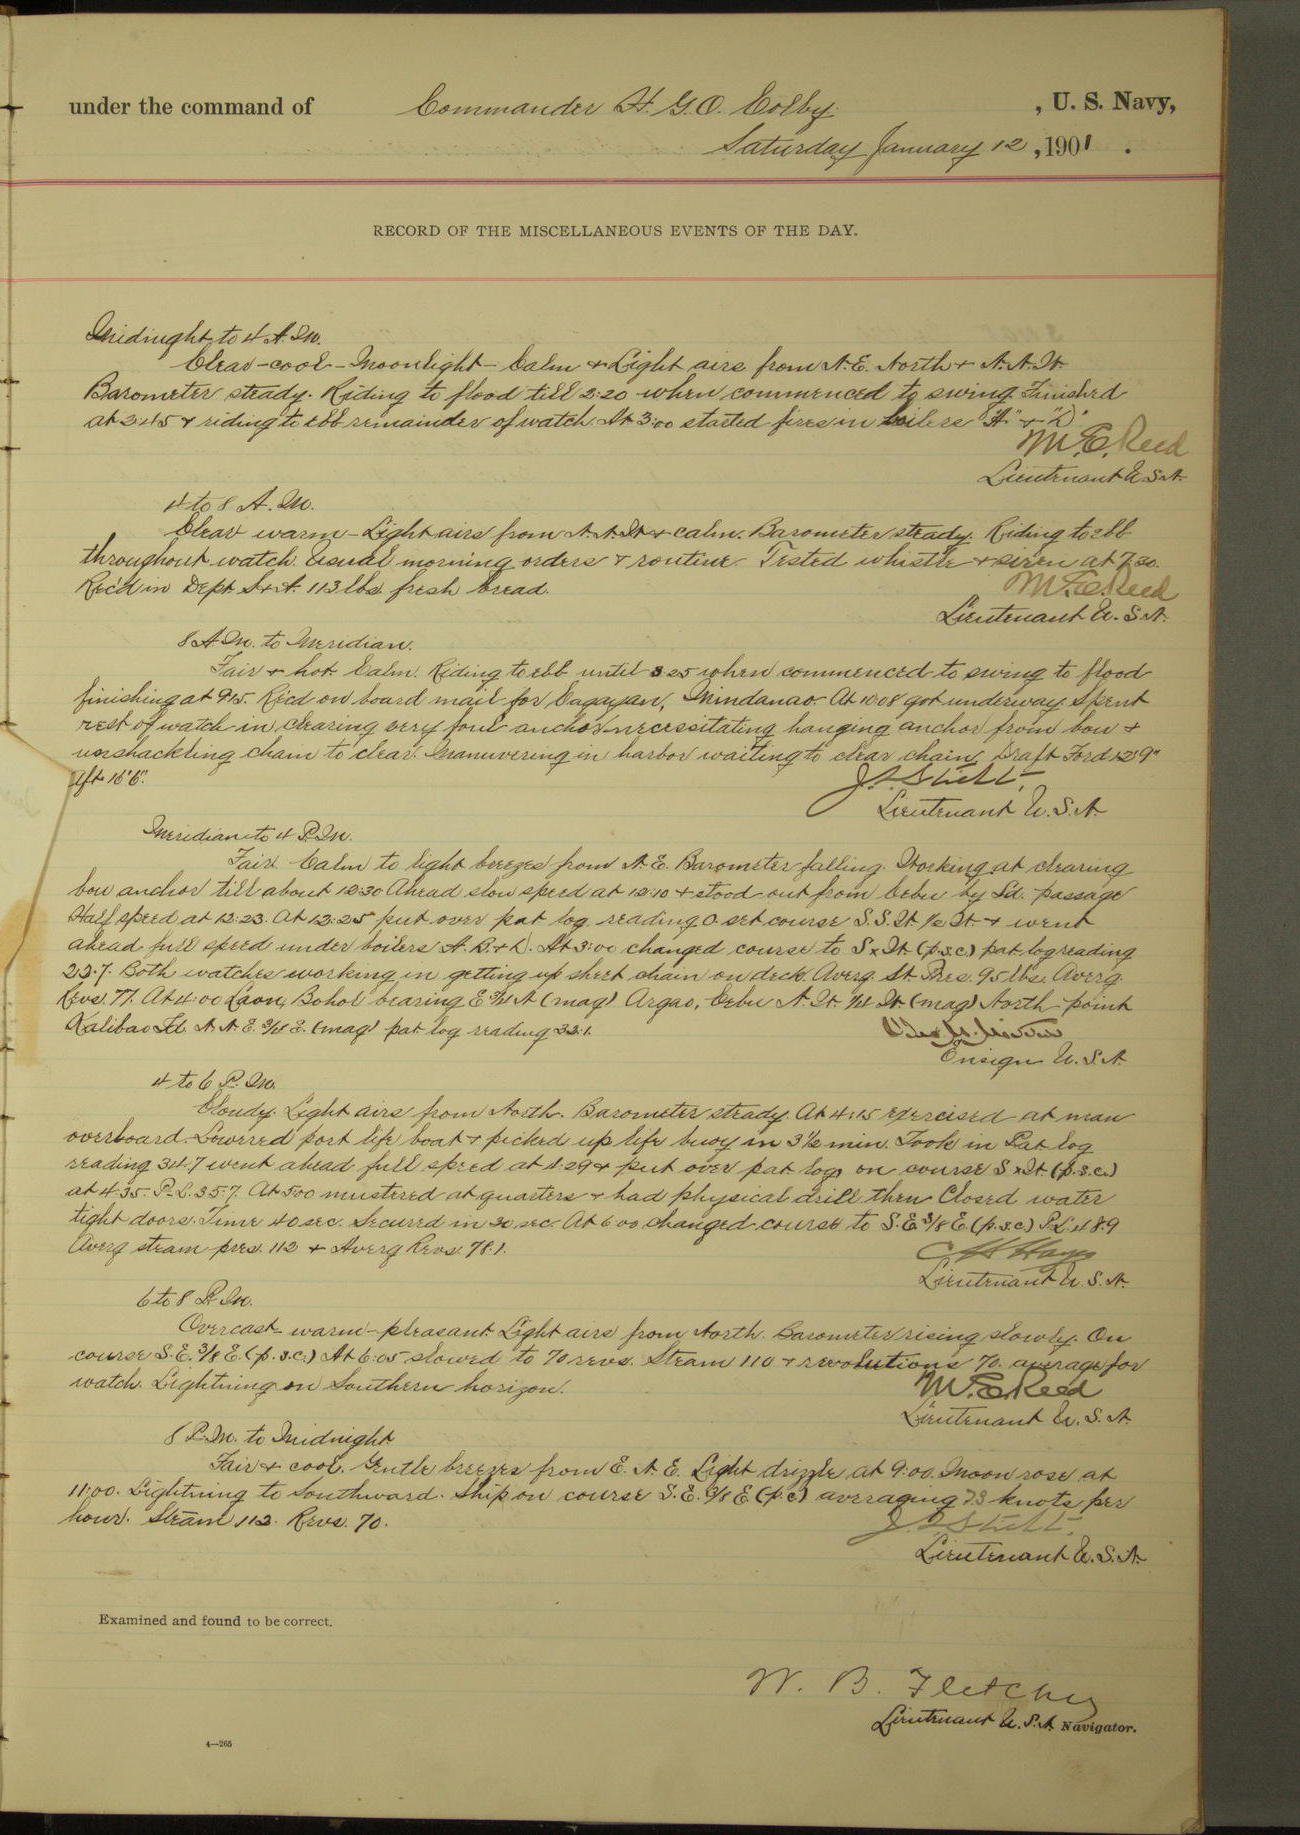 under the command of Commander H. G. O. Colby , U. S. Navy,
Saturday January 12 , 1901 .
RECORD OF THE MISCELLANEOUS EVENTS OF THE DAY.
Midnight to 4 A.M.
Clear - cool - Moonlight - Calm & Light airs from N.E. North & N.N.W.
Barometer steady. Riding to flood till 2:20 when commenced to swing. Finished
at 2:45 & riding to ebb remainder of watch. At 3:00 started fires in boilers "A" & "D"
M. E. Reed
Lieutenant U.S.N.
4 to 8 A.M.
Clear warm - Light airs from N.N.W. & calm. Barometer steady. Riding to ebb
throughout watch. Usual morning orders & routine. Tested whistle & siren at 7.30.
Rec'd in Dept S & A. 113 lbs. fresh bread.
M. E. Reed
Lieutenant U.S.N.
8 A.M. to Meridian.
Fair & hot. Calm. Riding to ebb until 8 25 when commenced to swing to flood
finishing at 9.15. Rec'd on board mail for Cagayan, Mindanao. At 10 08 got underway. Spent
rest of watch in clearing very foul anchor necessitating hanging anchor from bow &
unshackling chain to clear. Manuvering in harbor waiting to clear chain. Draft Ford 12' 9"
Aft 16' 6".
Lieutenant U.S.N.
Meridian to 4 P.M.
Fair. Calm to light breezes from N.E. Barometer falling. Working at clearing
bow anchor till about 12:30 Ahead slow speed at 12:10 & stood out from Cebu by Sd. passage
Half speed at 12:23. At 12:25 put over pat log reading 0. set course S.S.W. 1/2 W. & went
ahead full speed under boilers A. B. & D. At 3:00 changed course to S x W. (p.s.c.) pat. log reading
22.7. Both watches working in getting up sheet chain on deck. Averg. St. Pres. 95 lbs. Averg.
Revs. 77. At 4:00 Laon, Bohol bearing E 3/4 N (mag) Argao, Cebu N.W. 1/4 W. (mag) North point
Kalibao Id. N.N.E. 3/4 E. (mag) pat log reading 32.1.
Ensign U.S.N.
4 to 6 P.M.
Cloudy. Light airs from North. Barometer steady. At 4:15 exercised at man
overboard. Lowered port life boat & picked up life buoy in 3 1/2 min. Took in Pat log
reading 34.7 went ahead full speed at 4 29 & put over pat log on course S x W. (p.s.c.)
at 4.35. P.L. 35.7. At 5 00 mustered at quarters & had physical drill then Closed water
tight doors. Time 40 sec. Secured in 30 sec. At 6 00 changed course to S.E 3/8 E. (p.s.c) P.L. 48.9
Averg steam pres. 112 & Averg Revs. 78.1.
Lieutenant U.S.N.
6 to 8 P.M.
Overcast - warm - pleasant. Light airs from North. Barometer rising slowly. On
course S.E. 3/8 E. (p.s.c.) At 6:05 slowed to 70 revs. Steam 110 & revolutions 70. average for
watch. Lightning on Southern horizon.
M. E. Reed
Lieutenant U.S.N.
8 P.M. to Midnight
Fair & cool. Gentle breezes from E.N.E. Light drizzle at 9:00. Moon rose at
11:00. Lightning to Southward. Ship on course S.E. 3/8 E (p.c) averaging 7.3 knots per
hour. Steam 112. Revs. 70.
Lieutenant U.S.N.
Examined and found to be correct.
W. B. Fletcher
Lieutenant U.S.N. Navigator.
4—265